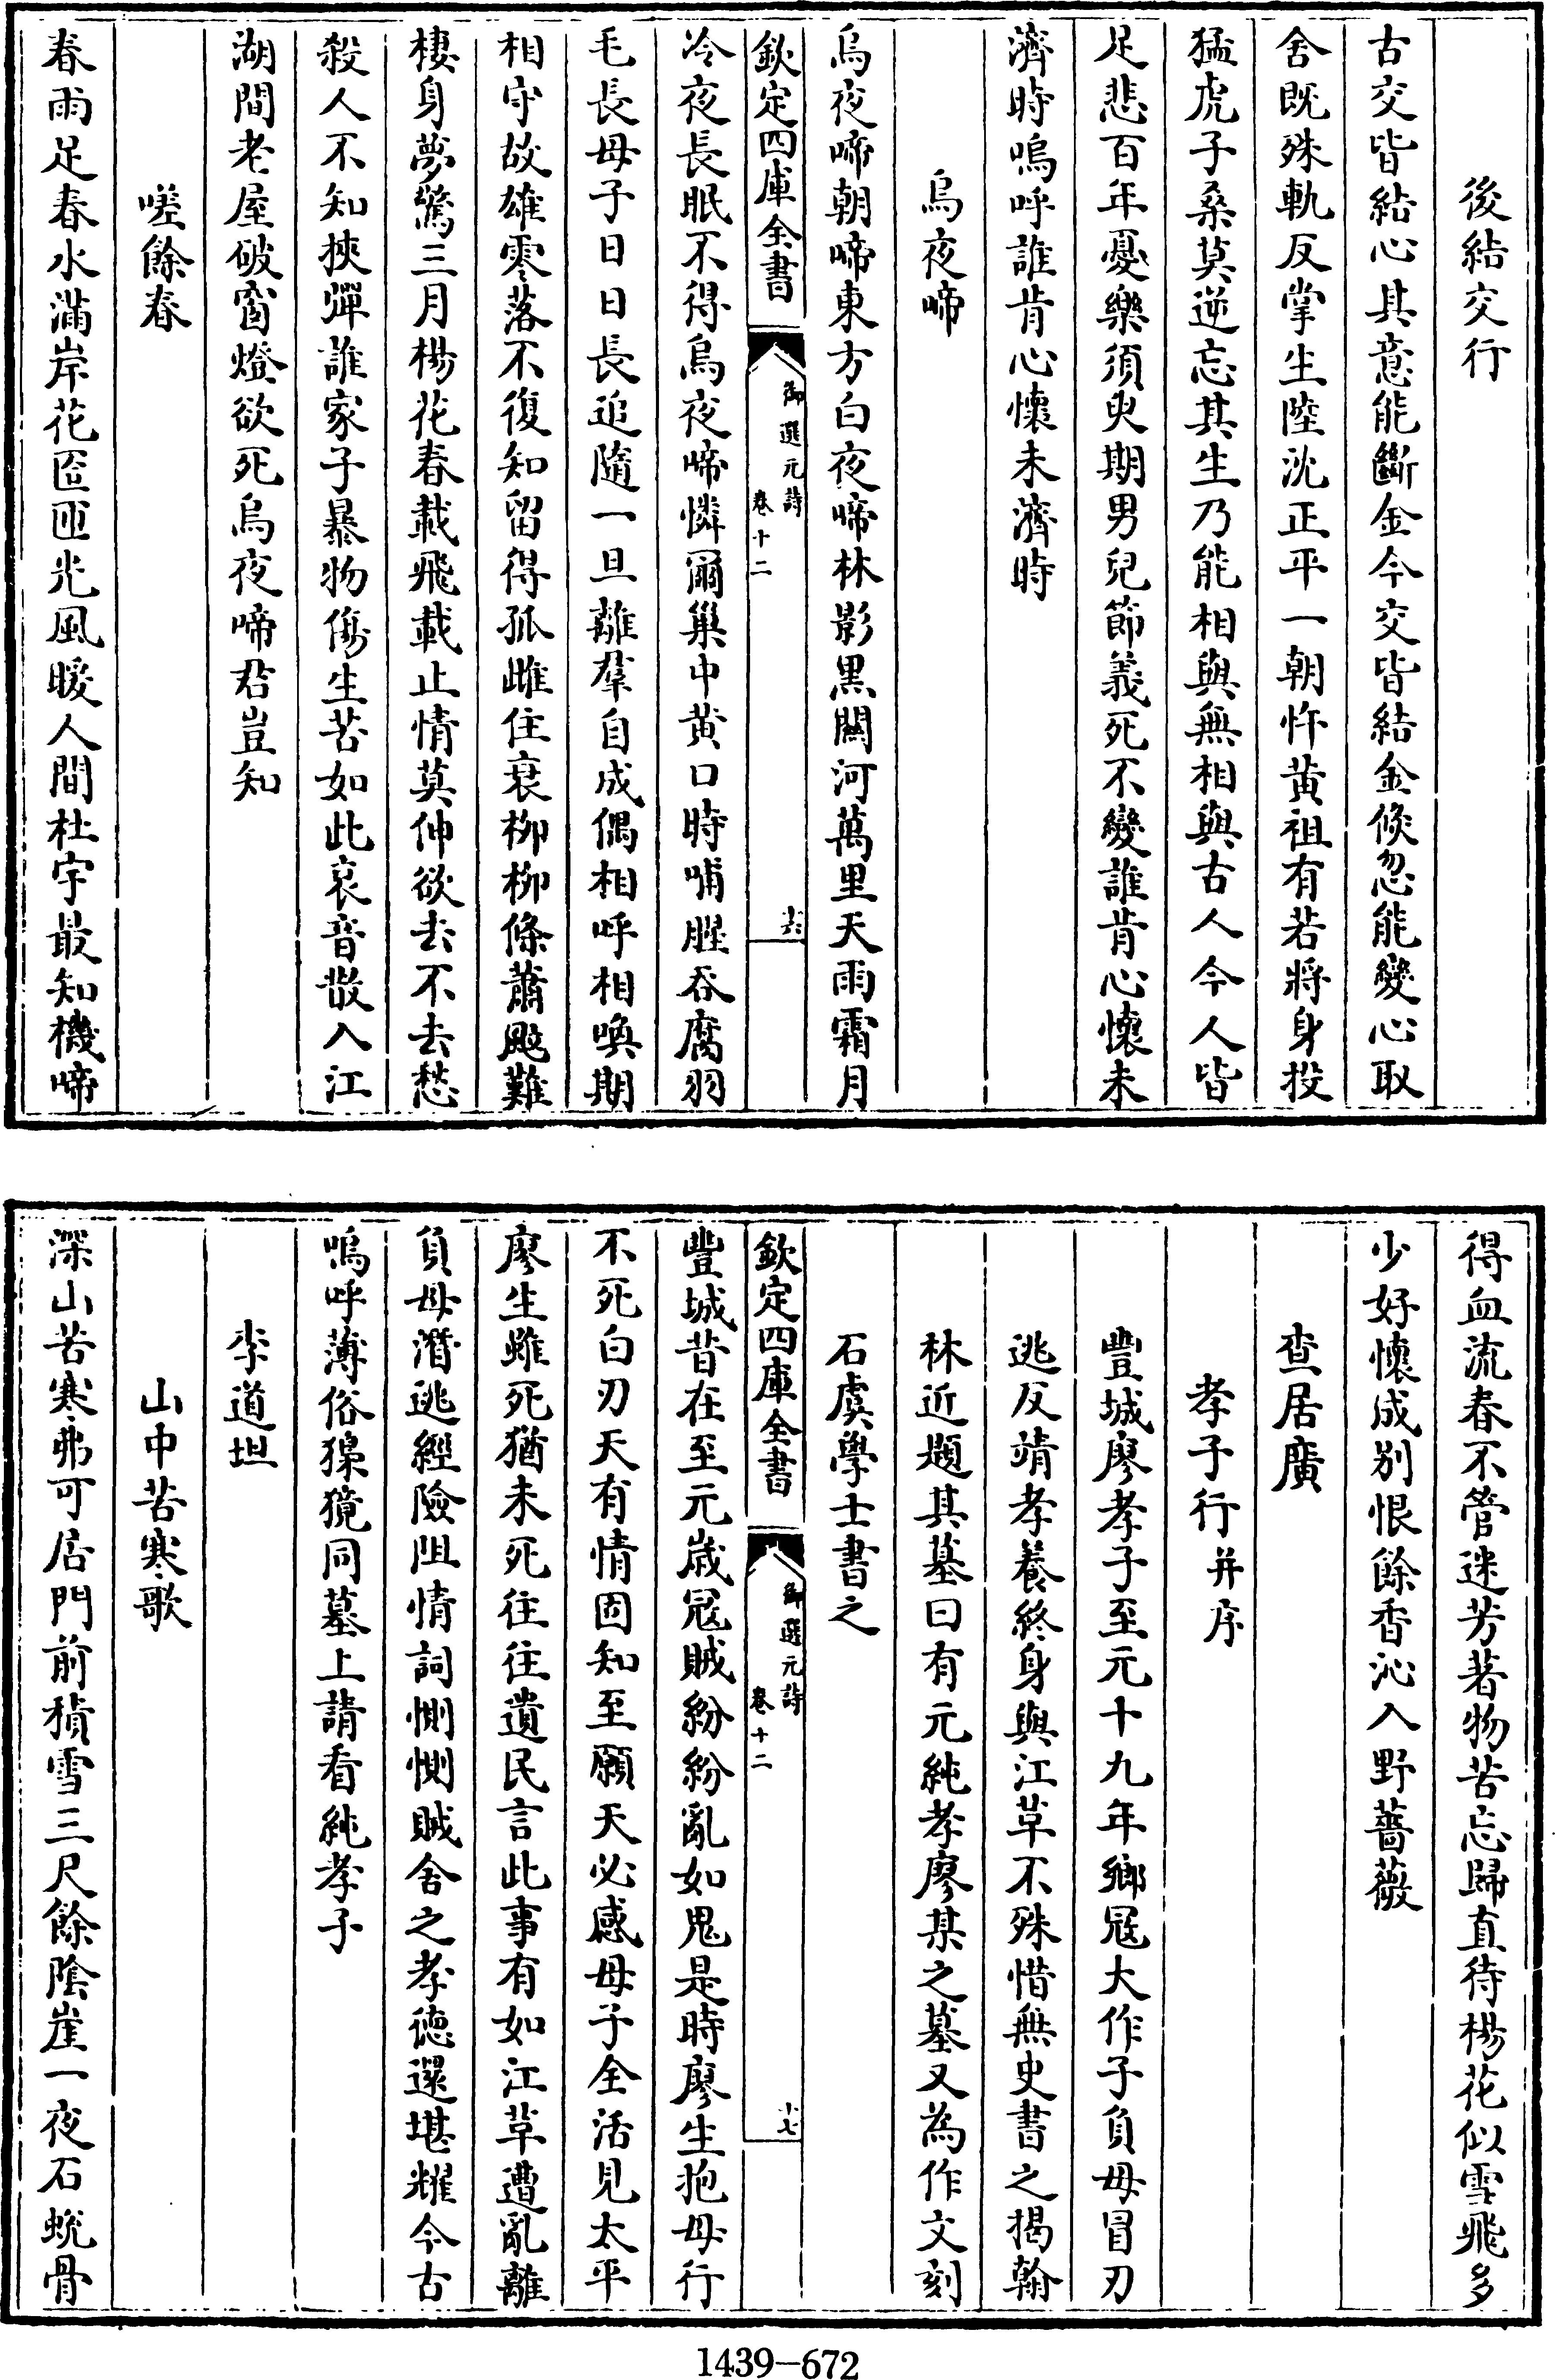 後結交行
古交皆結心其意能斷金今交皆結金倐忽能變心取
舍既殊軌反掌生陸沈正平一朝忤黄祖有若將身投
猛虎子桑莫逆忘其生乃能相與無相與古人今人皆
足悲百年憂樂須臾期男兒節義死不變誰肯心懷未
濟時嗚呼誰肯心懷未濟時
烏夜啼
烏夜啼朝啼東方白夜啼林影黒關河萬里天雨霜月
欽定四庫全書
御選元詩
卷十二
十六
冷夜長眠不得烏夜啼憐爾巢中黄口時哺腥吞腐羽
毛長母子日日長追隨一旦離羣自成偶相呼相喚期
相守故雄零落不復知留得孤雌住衰柳柳條蕭颸難
棲身夢驚三月楊花春載飛載止情莫伸欲去不去愁
殺人不知挾彈誰家子暴物傷生苦如此哀音散入江
湖間老屋破窗燈欲死烏夜啼君豈知
嗟餘春
春雨足春水滿岸花匼匝光風暖人間杜宇最知機啼
得血流春不管迷芳著物苦忘歸直待楊花似雪飛多
少好懷成别恨餘香沁入野薔薇
查居廣
孝子行并序
豐城廖孝子至元十九年鄉冦大作子負母冒刃
逃反靖孝養終身與江革不殊惜無史書之揭翰
林近題其墓曰有元純孝廖某之墓又為作文刻
石虞學士書之
欽定四庫全書
御選元詩
卷十二
十七
豐城昔在至元嵗冦賊紛紛亂如鬼是時廖生抱母行
不死白刃天有情固知至願天必感母子全活見太平
廖生雖死猶未死往往遺民言此事有如江革遭亂離
負母潛逃經險阻情詞惻惻賊舍之孝徳還堪耀今古
嗚呼薄俗獍同墓上請看純孝子
李道坦
山中苦寒歌
深山苦寒弗可居門前積雪三尺餘陰崖一夜石蜕骨
1439-672